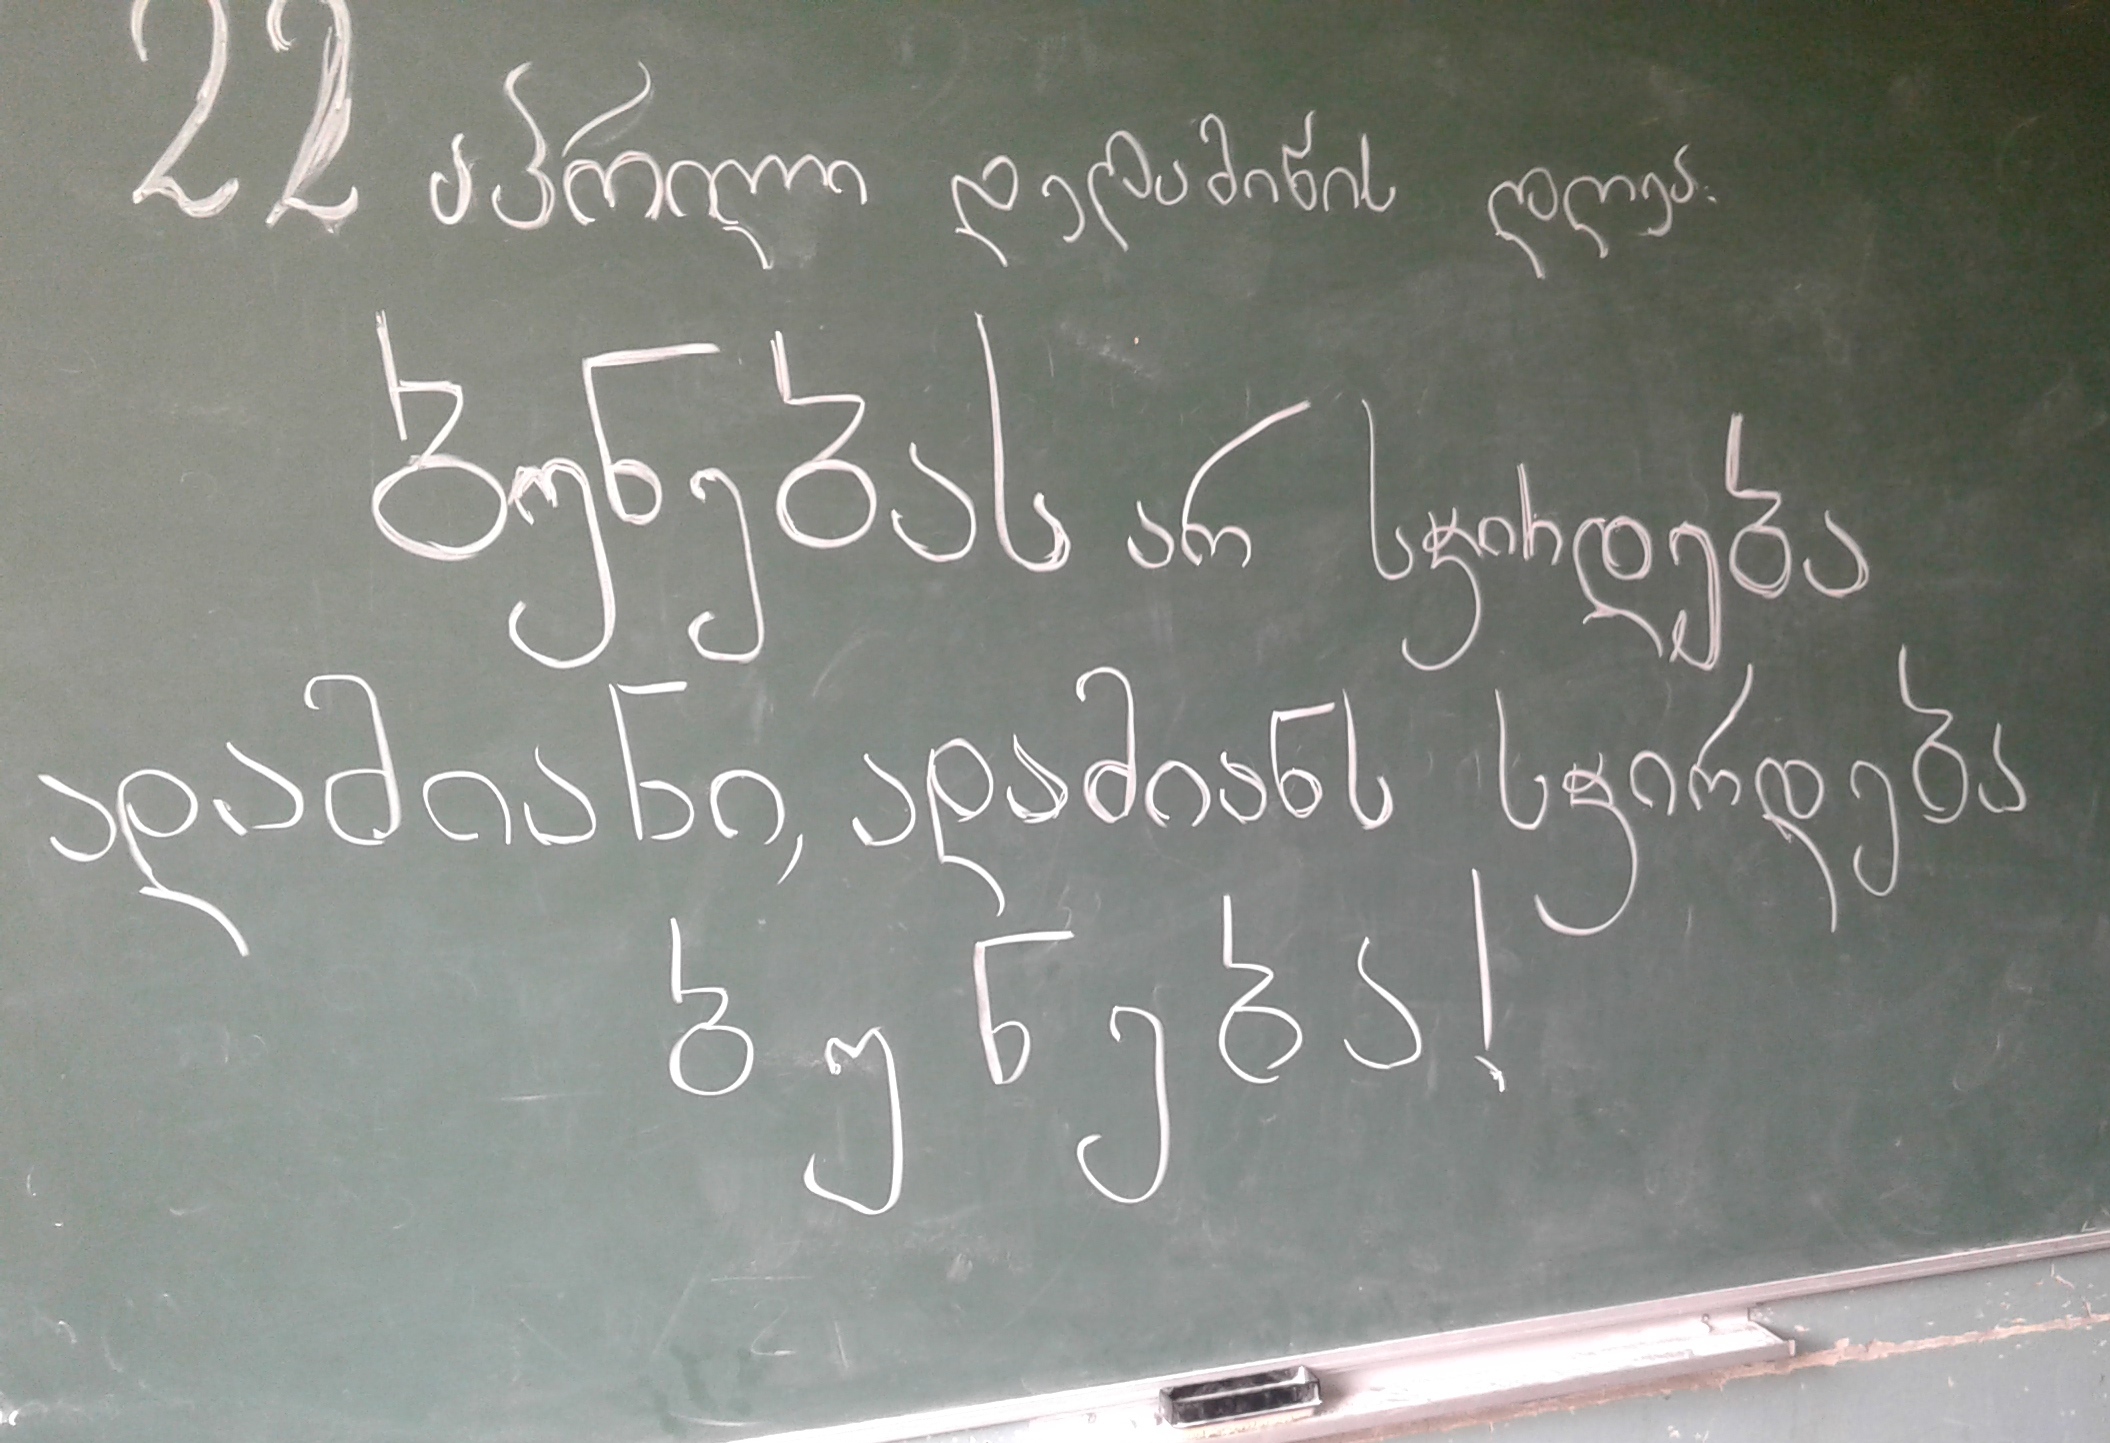 22 აპრილი დედამიწის დღეა.
ბუნებას არ სჭირდება
ადამიანი, ადამიანს სჭირდება
ბუნება!